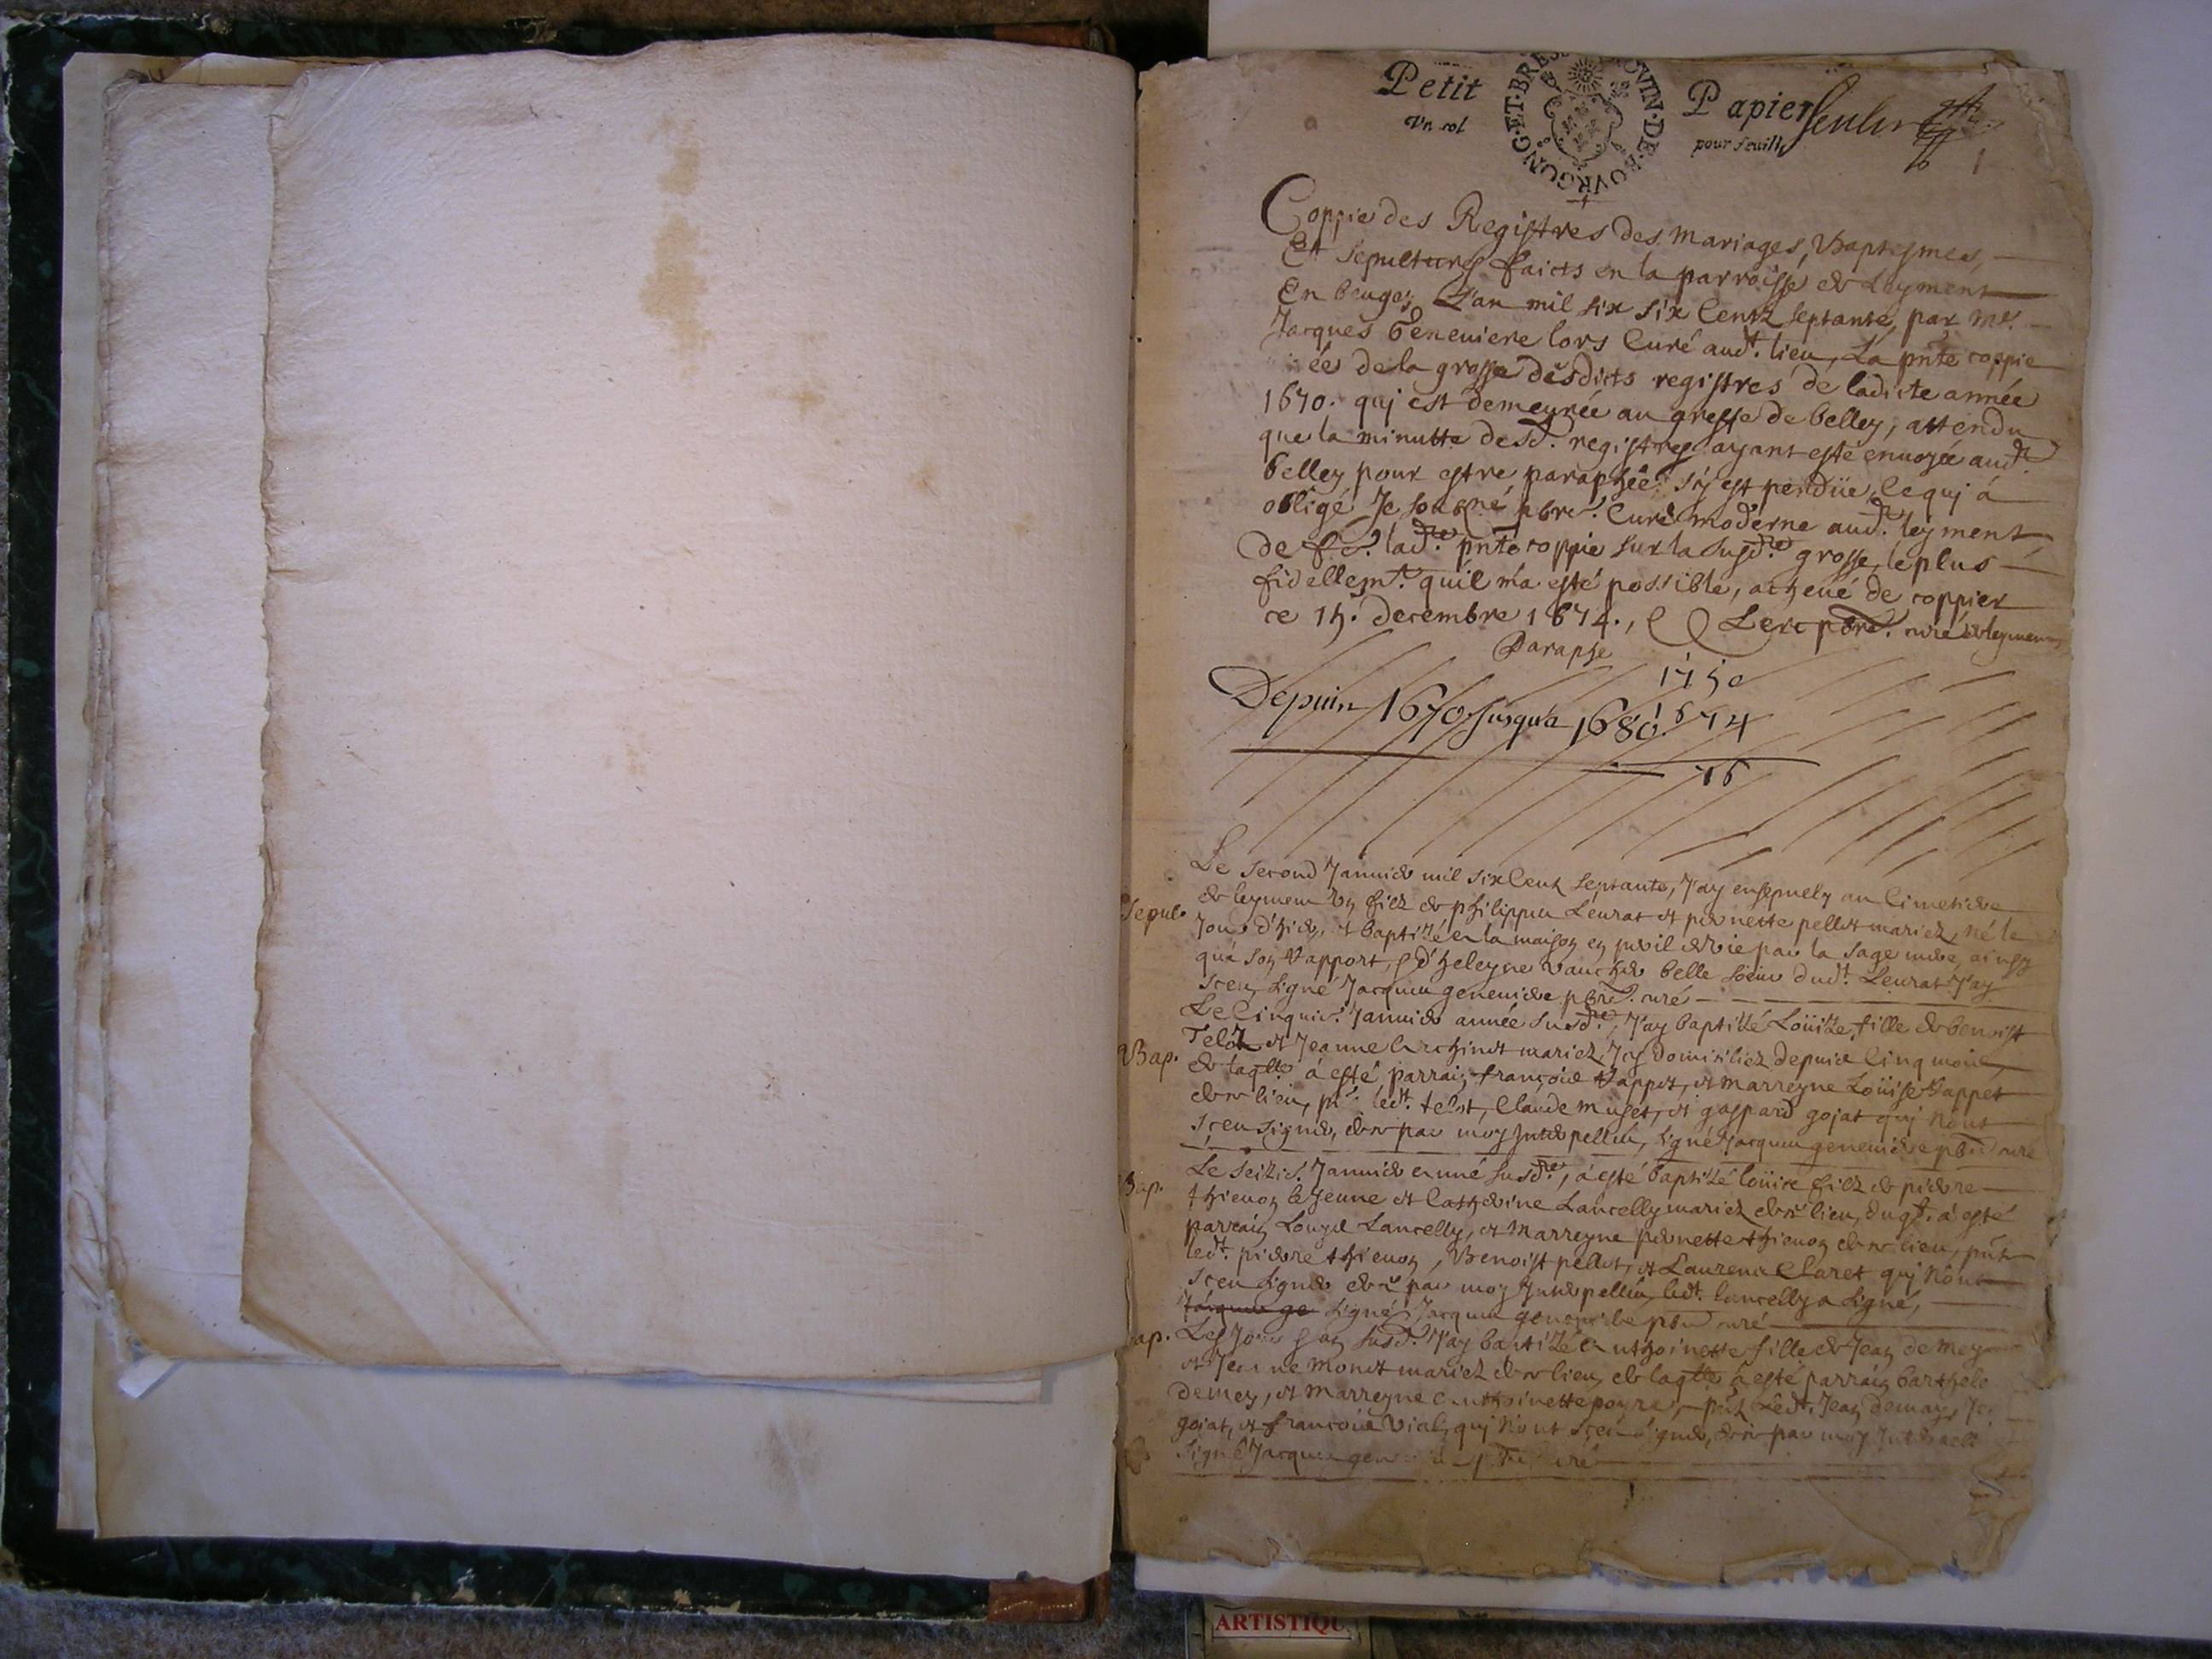 Petit Papier
Vn sol pour feuille
PROVIN·DE·BOVRGONG·ET·BRES
Coppie des Registres des Mariages, Baptesmes,
Et Sepultures faicts en la parroisse de Leyment
En beugey L'an mil six six Centz septante, par Me.
Jacques Geneviere lors Curé aud̃t. lieu, La pñte coppie
ée de la grosse desdicts registres de ladicte année
1670. quj est demeurée au greffe de belley, attendu
que la minutte desd. registres ayant esté enuoyée aud.
belley pour estre paraphée s'y est perdüe, Ce quj á
obligé Je soubné pbre. Curé moderne aud. leyment
de fe. lad.e pñte coppie sur la susd.e grosse, le plus
fidellemt. quil m'a esté possible, acheué de coppier
ce 15. decembre 1674.,
Lerc pbre. curé de leyment
Paraphe
1750
Depuis 1670 Jusqu'a 1680 1674
76
Le second Januier mil six Cent septante, J'ay ensepuely au Cimetiere
Sepul.
de leyment vn filz de Philippe Leurat et pernette pellet mariez, né le
Jour d'hier, et baptizé en la maison en peril de vie par la sage mere, ainsy
qu'a son rapport, et d'heleyne vaucher belle soeur dud̃t. Leurat J'ay
sceu, signé Jacques geneuiere pbre. curé
Le Cinquie. Januier année susd.e, J'ay baptizé Loüize, fille de benoist
Bap.
Telot et Jeanne Archinet mariez, Jcy domiciliez depuis Cinq mois,
de laqlle á esté parrain françois Rappet, et marreyne Loüise Rappet
de ce lieu, pñs led̃t. telot, Claude Muget, et gaspard gojat quj n'ont
sceu signer, de ce par moy Interpellés, signé Jacques geneuiere pbre curé
Le seizie. Januier anné susd.e, á esté baptizé loüis filz de pierre
Bap.
thieuon le Jeune et Catherine Lancelly mariez de ce lieu, duql. á esté
parrain Louys Lancelly, et Marreyne pernette thieuon de ce lieu, pñts
led̃t. pierre thieuon, Benoist pellet, et Laurence Claret quj n'ont
sceu signer de ce par moy Interpellés, led̃t. lancelly a signé,
Jacques ge signé Jacques geneuiere pbre curé
ap.
Les Jour et an susd. J'ay baptizé Anthoinette fille de Jean de mey
et Jeanne Monet mariez de ce lieu, de laqlle á esté parrain barthele
demey, et Marreyne Anthoinette poyre, pñs led̃t. Jean demey,
gojat, et françois Vial, quj n'ont sceu signer, de ce par moy
signé Jacques pbre curé
ARTISTIQU